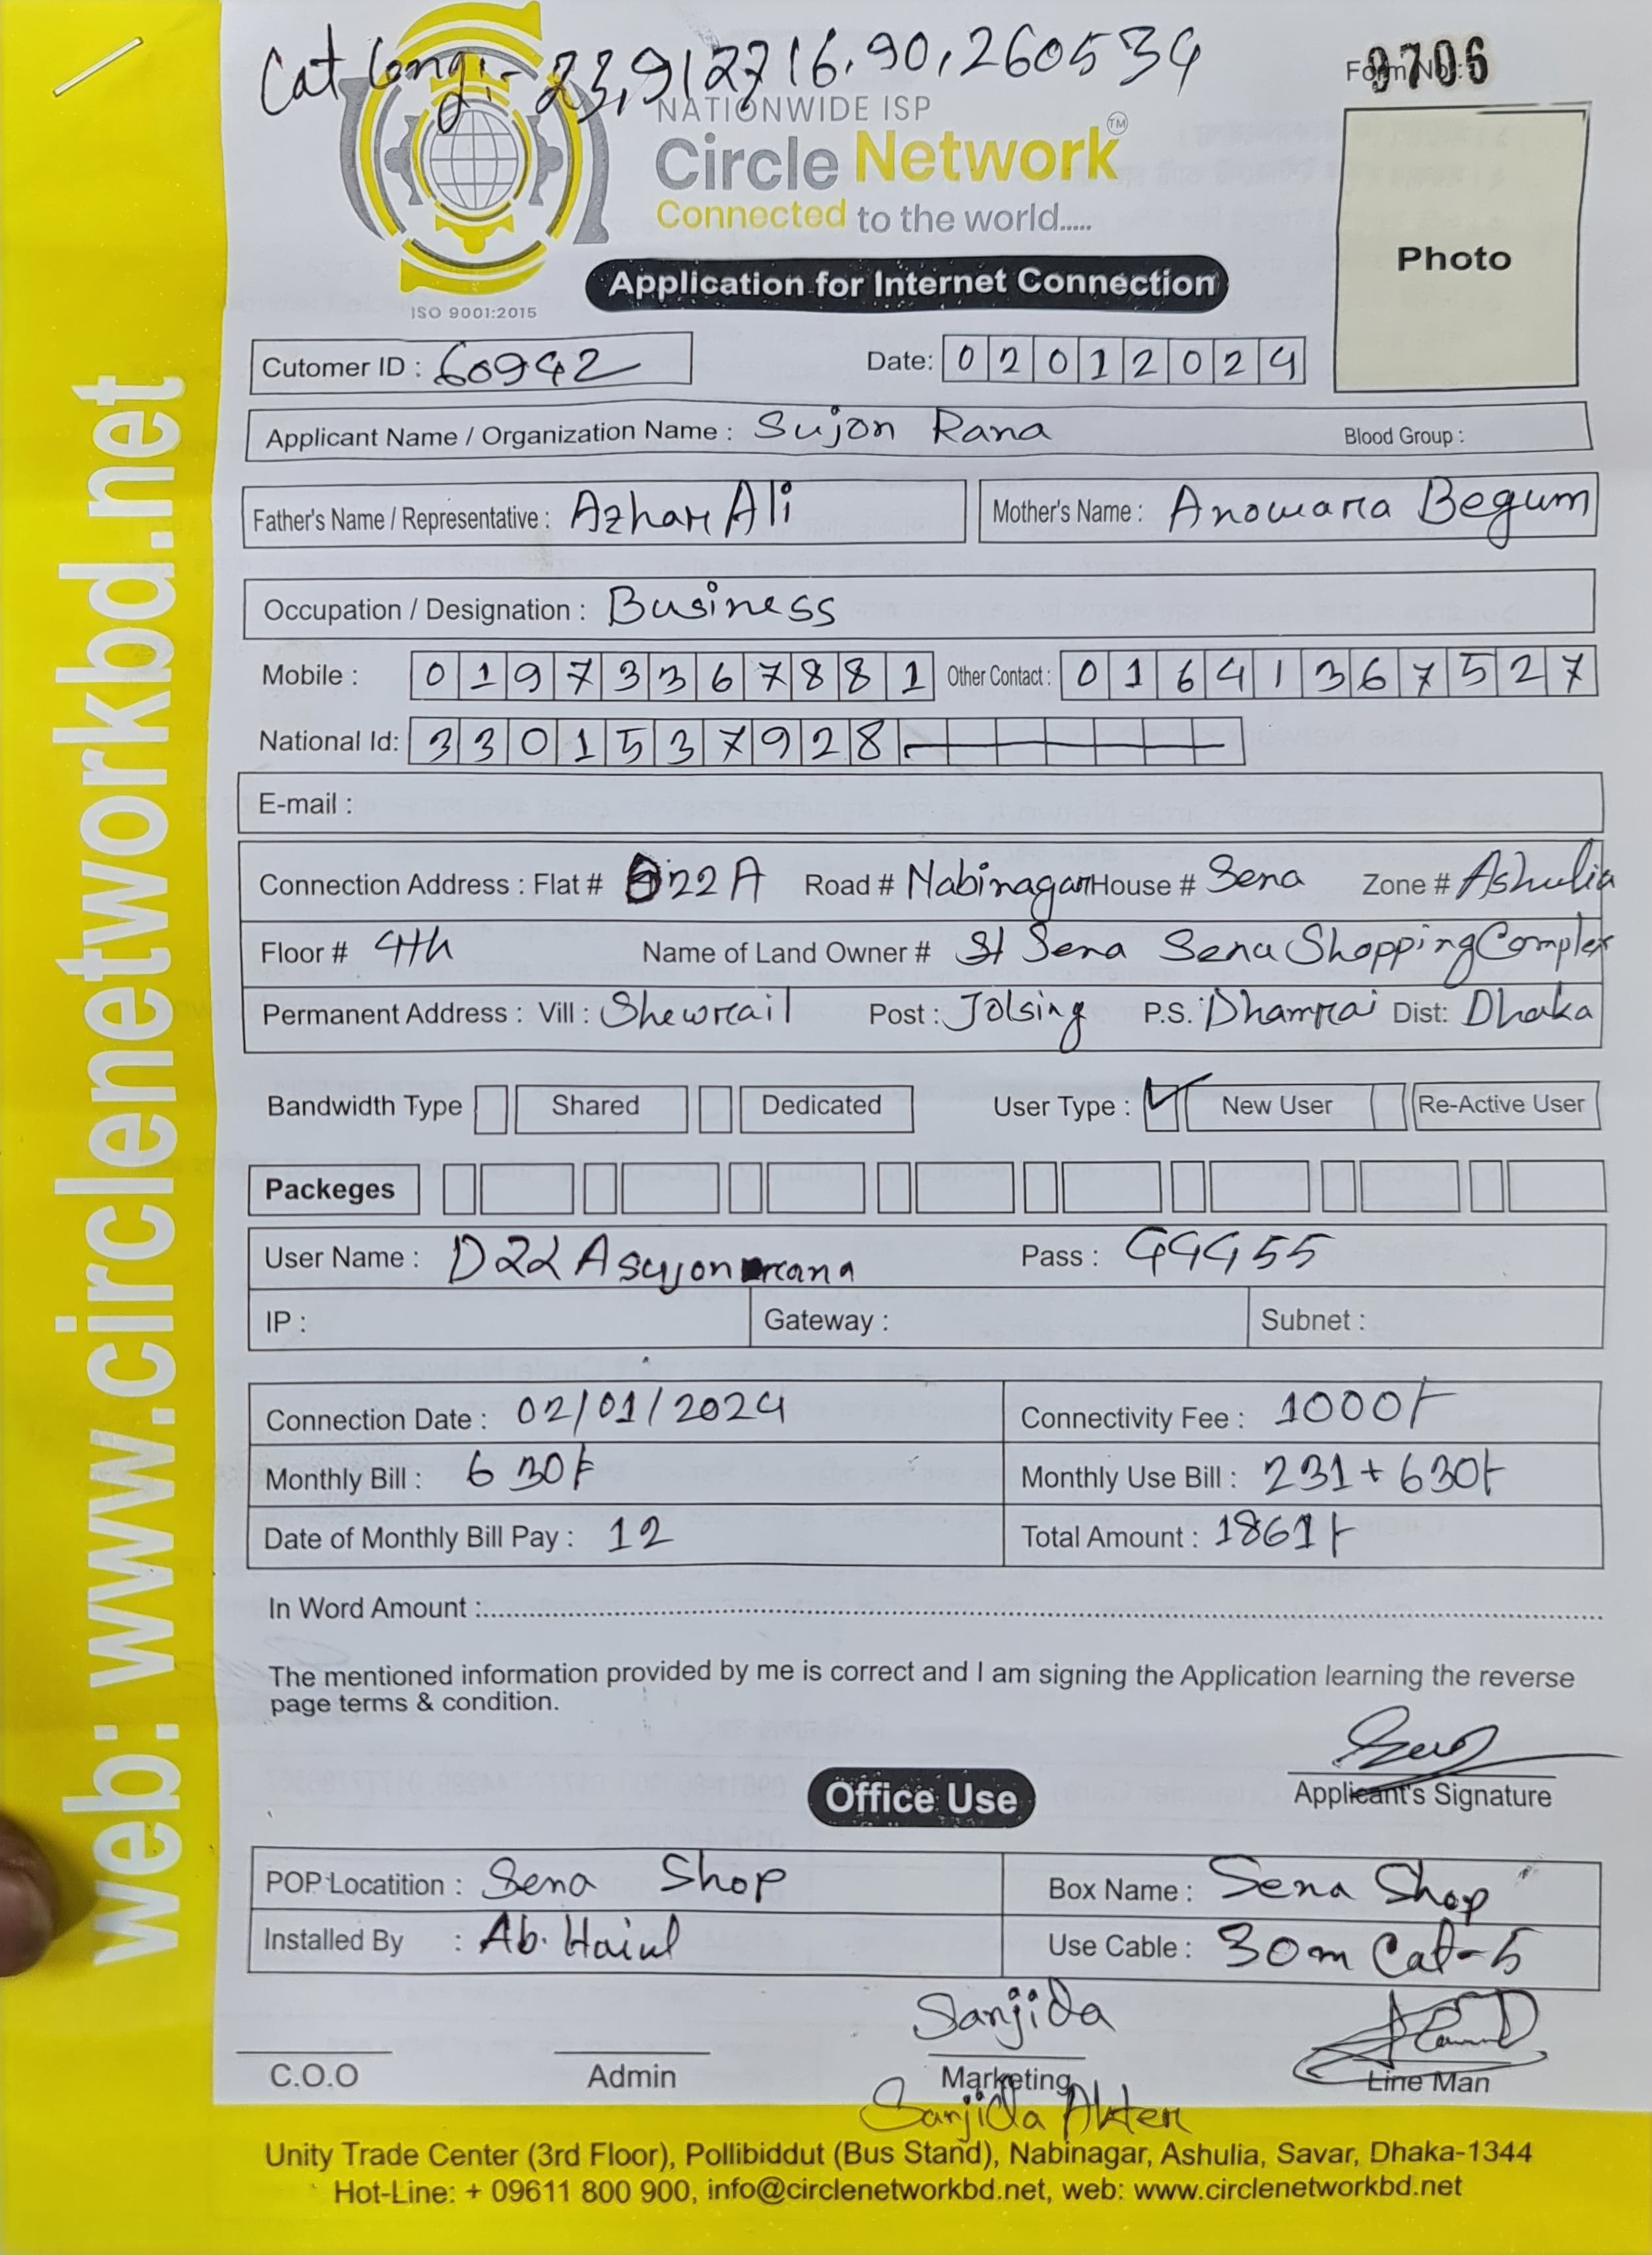 Cat Long:- 23,912716.90,260534
Form No.: 9706
NATIONWIDE ISP
Circle Network TM
Connected to the world.....
Photo
Application for Internet Connection
ISO 9001:2015
Cutomer ID : 60942 Date: 02012024
Applicant Name / Organization Name : Sujon Rana Blood Group :
Father's Name / Representative : Azhar Ali Mother's Name : Anowara Begum
Occupation / Designation : Business
Mobile : 01973367881 Other Contact : 01641367527
National Id: 3301537928
E-mail :
Connection Address : Flat # D22A Road # Nabinagar House # Sena Zone # Ashulia
Floor # 4th Name of Land Owner # Sena Sena Shopping Complex
Permanent Address : Vill : Shewrail Post : Jolsing P.S. : Dhamrai Dist: Dhaka
Bandwidth Type Shared Dedicated User Type : New User Re-Active User
Packeges
User Name : D22Asujonrana Pass : 44455
IP : Gateway : Subnet :
Connection Date : 02/01/2024 Connectivity Fee : 1000/-
Monthly Bill : 630/- Monthly Use Bill : 231 + 630/-
Date of Monthly Bill Pay : 12 Total Amount : 1861/-
In Word Amount :
The mentioned information provided by me is correct and I am signing the Application learning the reverse
page terms & condition.
Applicant's Signature
Office Use
POP Locatition : Sena Shop Box Name : Sena Shop
Installed By : Ab. Use Cable : 30m Cat-5
Sanjida
C.O.O Admin Marketing Line Man
Sanjida Akter
Unity Trade Center (3rd Floor), Pollibiddut (Bus Stand), Nabinagar, Ashulia, Savar, Dhaka-1344
Hot-Line: + 09611 800 900, info@circlenetworkbd.net, web: www.circlenetworkbd.net
web: www.circlenetworkbd.net